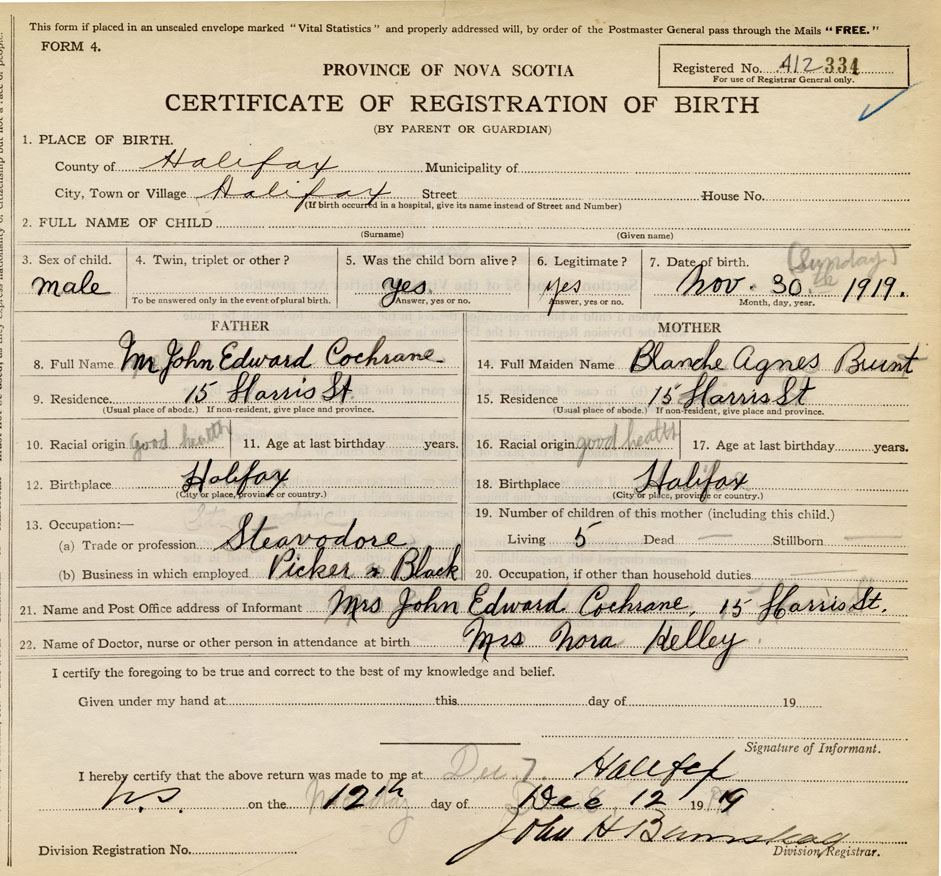 This form if placed in an unsealed envelope marked "Vital Statistics" and properly addressed will, by order of the Postmaster General pass through the Mails "FREE."
FORM 4.
Registered No. A12 334
For use of Registrar General only.
PROVINCE OF NOVA SCOTIA
CERTIFICATE OF REGISTRATION OF BIRTH
(BY PARENT OR GUARDIAN)
1. PLACE OF BIRTH.
County of Halifax Municipality of
City, Town or Village Halifax Street House No.
(If birth occurred in a hospital, give its name instead of Street and Number)
2. FULL NAME OF CHILD
(Surname) (Given name)
3. Sex of child. 4. Twin, triplet or other? 5. Was the child born alive? 6. Legitimate? 7. Date of birth. (Sunday)
male yes. yes Nov. 30. 1919.
To be answered only in the event of plural birth. Answer, yes or no. Answer, yes or no. Month, day, year.
FATHER MOTHER
8. Full Name Mr John Edward Cochrane 14. Full Maiden Name Blanche Agnes
9. Residence 15 Harris St. 15. Residence 15 Harris St
(Usual place of abode.) If non-resident, give place and province. (Usual place of abode.) If non-resident, give place and province.
10. Racial origin good health 11. Age at last birthday years. 16. Racial origin good health 17. Age at last birthday years.
12. Birthplace Halifax 18. Birthplace Halifax
(City or place, province or country.) (City or place, province or country.)
13. Occupation:— 19. Number of children of this mother (including this child.)
(a) Trade or profession Steavodore Living 5 Dead — Stillborn —
(b) Business in which employed Picker & Black 20. Occupation, if other than household duties
21. Name and Post Office address of Informant Mrs John Edward Cochrane, 15 Harris St.
22. Name of Doctor, nurse or other person in attendance at birth Mrs Nora Kelley
I certify the foregoing to be true and correct to the best of my knowledge and belief.
Given under my hand at this day of 19
Signature of Informant.
I hereby certify that the above return was made to me at Dec 7. Halifax
N.S. on the 12th day of Dec 12 19 19
John H
Division Registration No. Division Registrar.